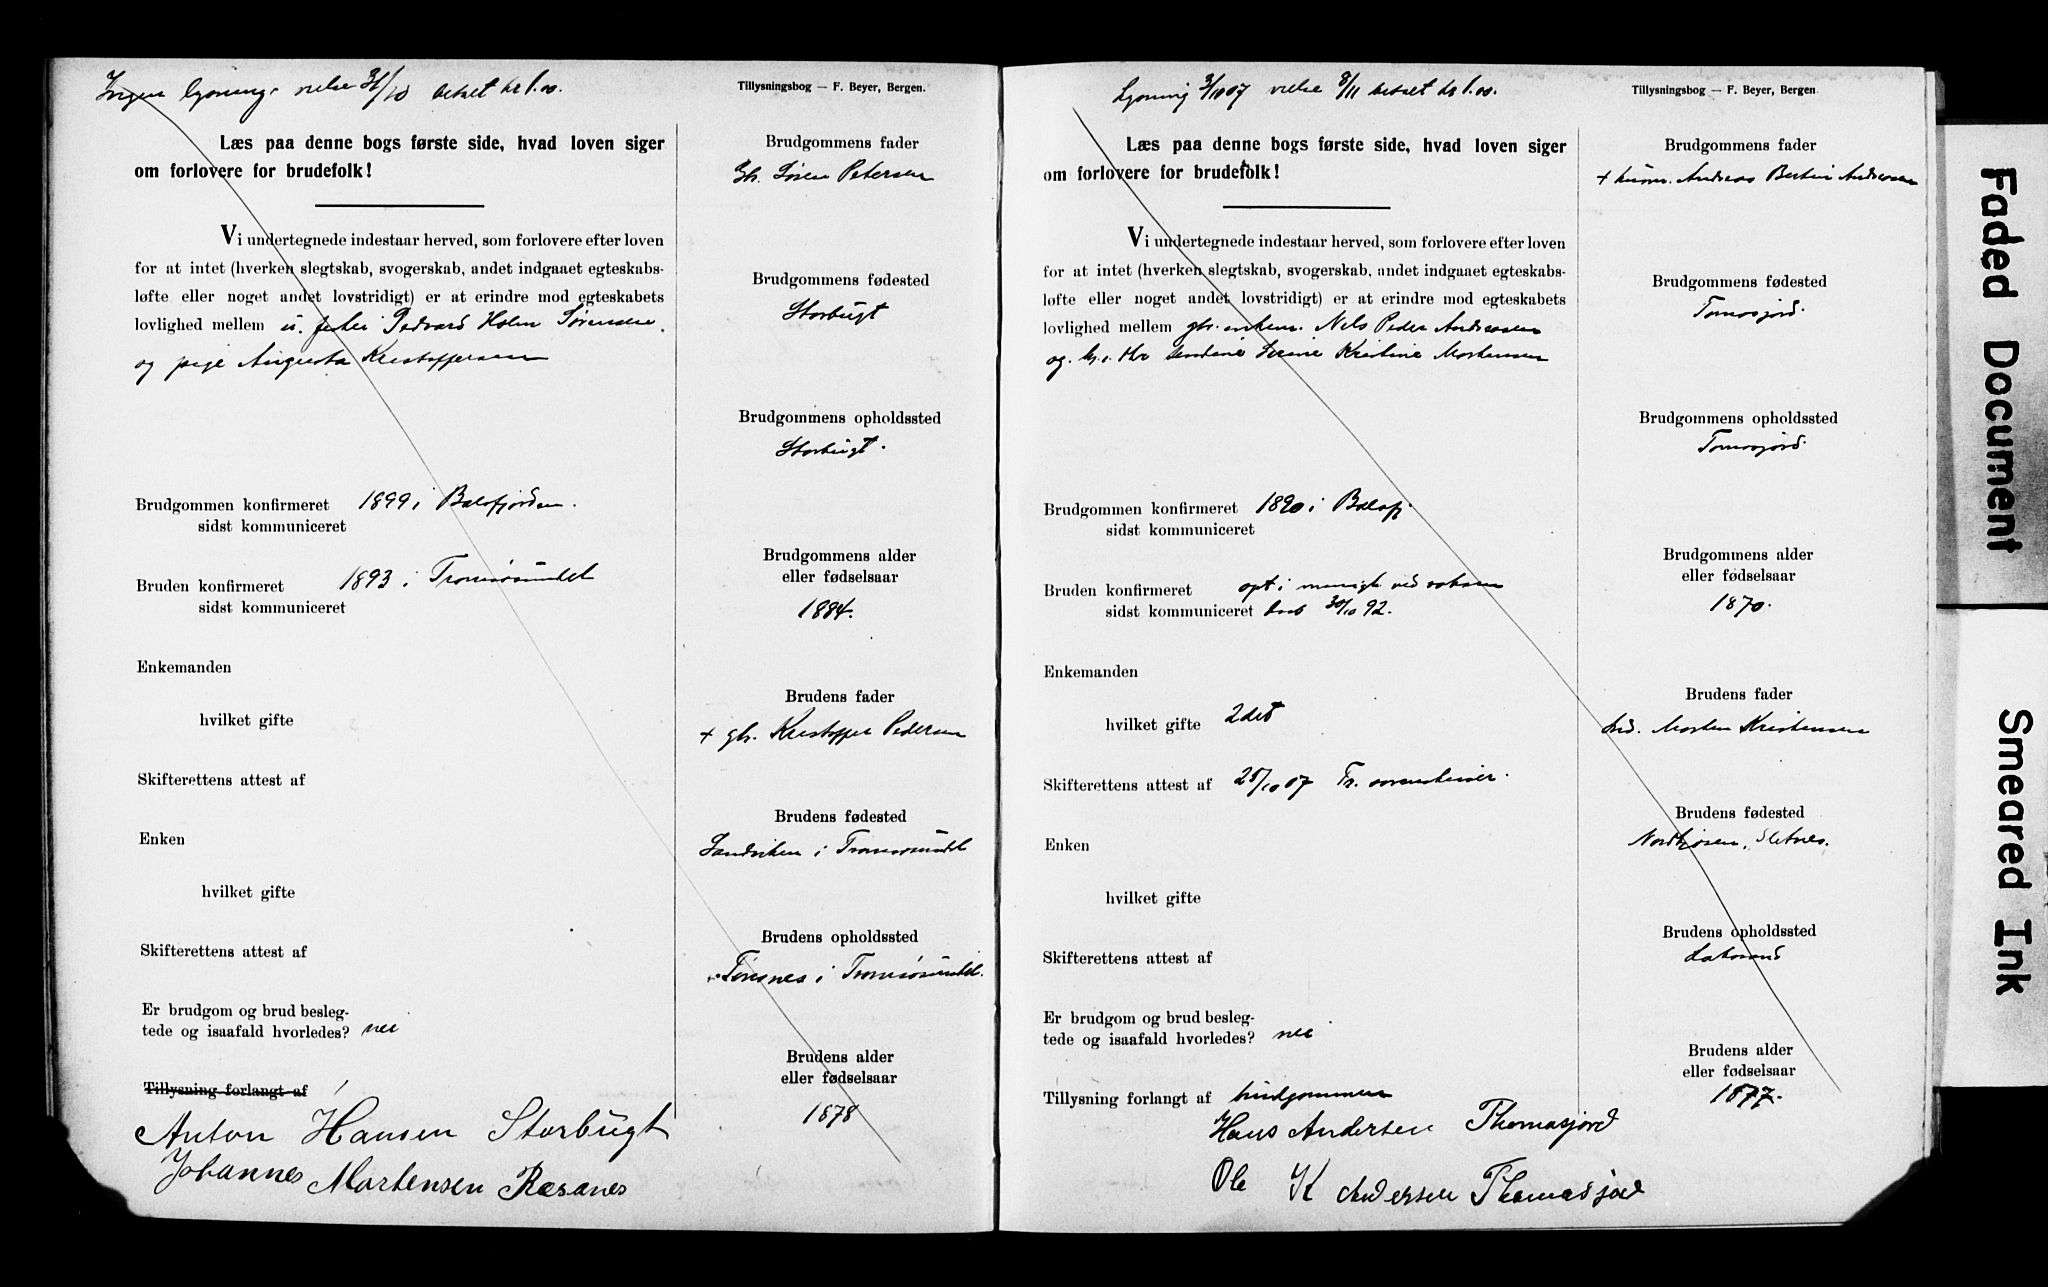 Ingen lysning, vielse 31/10 betalt kr 1.00.
Tillysningsbog — F. Beyer, Bergen.
Læs paa denne bogs første side, hvad loven siger
om forlovere for brudefolk!
Vi undertegnede indestaar herved, som forlovere efter loven
for at intet (hverken slegtskab, svogerskab, andet indgaaet egteskabs-
løfte eller noget andet lovstridigt) er at erindre mod egteskabets
lovlighed mellem u. fisker Pedvard Holm Sørensen,
og pige Augusta Kristoffersen
Brudgommen konfirmeret 1899 i Balsfjorden.
sidst kommuniceret
Bruden konfirmeret 1893 i Tromsøsundet
sidst kommuniceret
Enkemanden
hvilket gifte
Skifterettens attest af
Enken
hvilket gifte
Skifterettens attest af
Er brudgom og brud besleg-
tede og isaafald hvorledes? nei
Tillysning forlangt af
Anton Hansen Storbugt
Johannes Mortensen Ræsanes
Brudgommens fader
Gb. Søren Petersen
Brudgommens fødested
Storbugt
Brudgommens opholdssted
Storbugt.
Brudgommens alder
eller fødselsaar
1884.
Brudens fader
+ gbr. Kristoffer Pedersen
Brudens fødested
Sandviken i Tromsøsundet
Brudens opholdssted
Tønsnes i Tromsøsundet.
Brudens alder
eller fødselsaar
1878
Lysning 3/11 07 vielse 8/11 betalt kr 1.00.
Tillysningsbog — F. Beyer, Bergen
Læs paa denne bogs første side, hvad loven siger
om forlovere for brudefolk!
Vi undertegnede indestaar herved, som forlovere efter loven
for at intet (hverken slegtskab, svogerskab, andet indgaaet egteskabs-
løfte eller noget andet lovstridigt) er at erindre mod egteskabets
lovlighed mellem gbr. enkem. Nels Peder Andreasen
og Serine Kristine Mortensen
Brudgommen konfirmeret 1890 i Balsfj.
sidst kommuniceret
Bruden konfirmeret opt i menigh ved voksen
sidst kommuniceret daab 30/10 92.
Enkemanden
hvilket gifte 2det
Skifterettens attest af 25/10 07 Tr. sorenskriver.
Enken
hvilket gifte
Skifterettens attest af
Er brudgom og brud besleg-
tede og isaafald hvorledes? nei
Tillysning forlangt af brudgommen
Hans Andersen Thomasjord
Ole K Andersen Thomasjord
Brudgommens fader
+ husm. Andreas Bertin Andreasen
Brudgommens fødested
Tomasjord.
Brudgommens opholdssted
Tomasjord.
Brudgommens alder
eller fødselsaar
1870.
Brudens fader
Morten Kristensen
Brudens fødested
Sletnes.
Brudens opholdssted
Laksvand
Brudens alder
eller fødselsaar
1877.
Faded Document
Smeared Ink